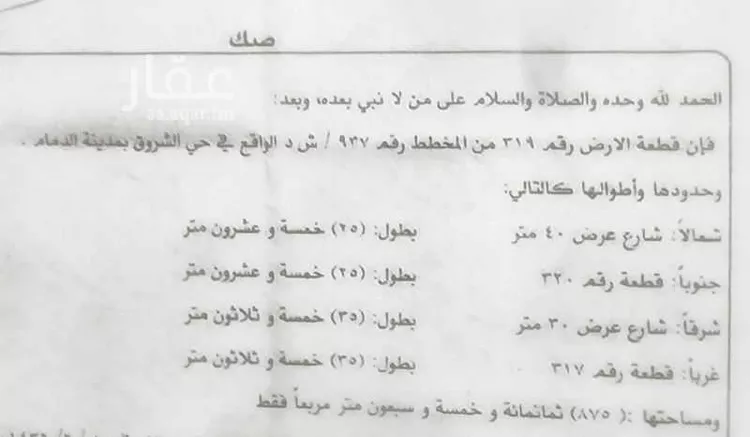 صك
عقار
الحمد لله وحده والصلاة والسلام على من لا نبي بعده، وبعد:
فإن قطعة الارض رقم ٣١٩ من المخطط رقم ٩٣٧ / ش د الواقع في حي الشروق بمدينة الدمام .
وحدودها وأطوالها كالتالي:
شمالاً: شارع عرض ٤٠ متر بطول: (٢٥) خمسة و عشرون متر
جنوباً: قطعة رقم ٣٢٠ بطول: (٢٥) خمسة و عشرون متر
شرقاً: شارع عرض ٣٠ متر بطول: (٣٥) خمسة و ثلاثون متر
غرباً: قطعة رقم ٣١٧ بطول: (٣٥) خمسة و ثلاثون متر
ومساحتها :( ٨٧٥) ثمانمائة و خمسة و سبعون متر مربعاً فقط